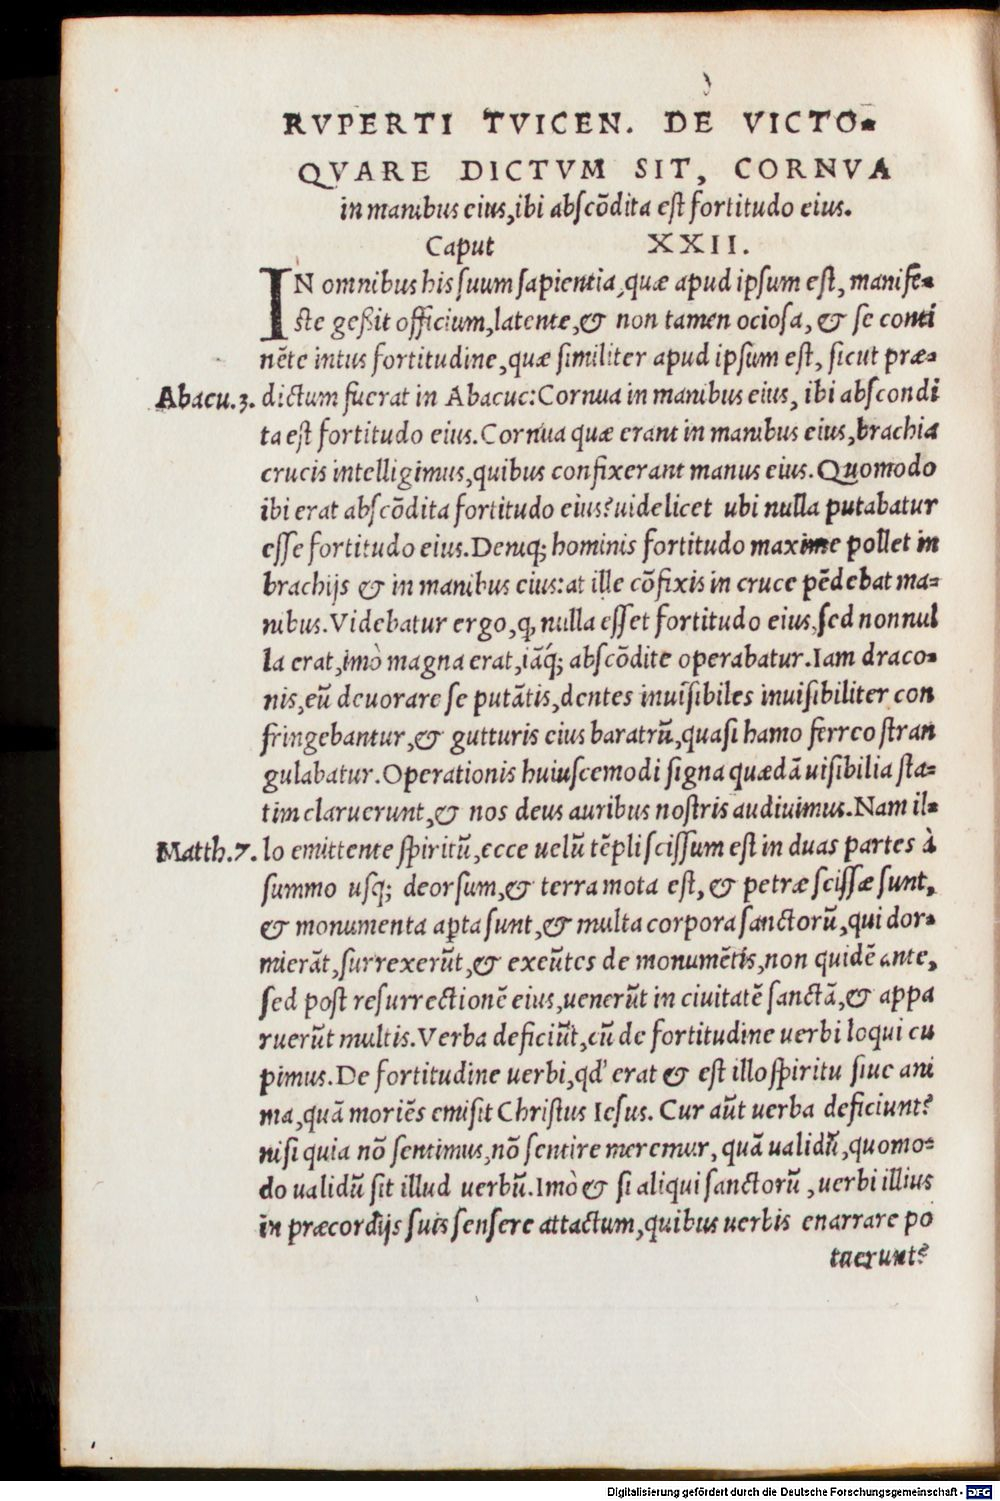 RVPERTI TVICEN. DE VICTO-
QVARE DICTVM SIT, CORNVA
in manibus eius, ibi abscõdita est fortitudo eius.
Caput XXII.
IN omnibus his suum sapientia, quæ apud ipsum est, manife-
ste geßit officium, latente, & non tamen ociosa, & se conti
nẽte intus fortitudine, quæ similiter apud ipsum est, sicut præ-
Abacu.3. dictum fuerat in Abacuc: Cornua in manibus eius, ibi abscondi
ta est fortitudo eius. Cornua quæ erant in manibus eius, brachia
crucis intelligimus, quibus confixerant manus eius. Quomodo
ibi erat abscõdita fortitudo eius? uidelicet ubi nulla putabatur
esse fortitudo eius. Deniq; hominis fortitudo maxime pollet in
brachijs & in manibus eius: at ille cõfixis in cruce pẽdebat ma-
nibus. Videbatur ergo, q, nulla esset fortitudo eius, sed non nul
la erat, imò magna erat, iãq́; abscõdite operabatur. Iam draco-
nis, eũ deuorare se putãtis, dentes inuisibiles inuisibiliter con
fringebantur, & gutturis eius baratrũ, quasi hamo ferreo stran
gulabatur. Operationis huiuscemodi signa quædã uisibilia sta-
tim claruerunt, & nos deus auribus nostris audiuimus. Nam il-
Matth.7. lo emittente spiritũ, ecce uelũ tẽpli scissum est in duas partes à
summo usq; deorsum, & terra mota est, & petræ scissæ sunt,
& monumenta apta sunt, & multa corpora sanctorũ, qui dor-
mierãt, surrexerũt, & exeũtes de monumẽtis, non quidẽ ante,
sed post resurrectionẽ eius, uenerũt in ciuitatẽ sanctã, & appa
ruerũt multis. Verba deficiũt, cũ de fortitudine uerbi loqui cu
pimus. De fortitudine uerbi, qd' erat & est illo spiritu siue ani
ma, quã moriẽs emisit Christus Iesus. Cur aũt uerba deficiunt?
nisi quia nõ sentimus, nõ sentire meremur, quã ualidũ, quomo-
do ualidũ sit illud uerbũ. Imò & si aliqui sanctorũ, uerbi illius
in præcordijs suis sensere attactum, quibus uerbis enarrare po
tuerunt?
Digitalisierung gefördert durch die Deutsche Forschungsgemeinschaft - DFG